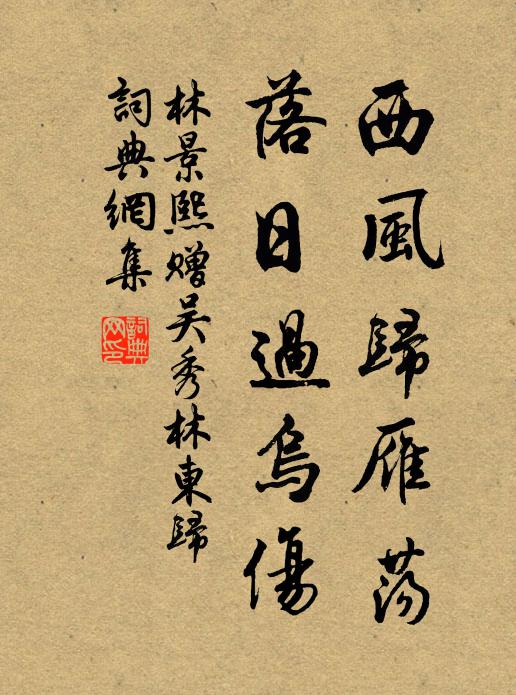 西風歸雁蕩
落日過烏傷
林景熙贈吴秀林東歸
詞典網集
詞典網印